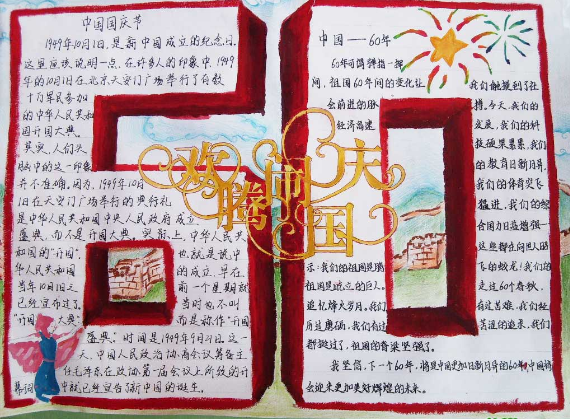 中国国庆节
1949年10月1日,是新中国成立的纪念日。
这里应该说明一点,在许多人的印象中,1949
年的10月1日在北京天安门广场举行了有数
十万军民参加
的中华人民共和
国开国大典。
其实,人们头
脑中的这一印象
并不准确。因为,1949年10月
1日在天安门广场举行的典礼
是中华人民共和国中央人民政府成立
盛典,而不是开国大典。实际上,中华人民共
和国的"开国",
也就是说中
华人民共和国
的成立,早在
当年10月1日
前一个星期就
已经宣布过了。
当时也不叫
"开国大典"
而是称作"开国
盛典"。时间是1949年9月21日。这一
天,中国人民政治协商会议筹备主
任毛泽东在政协第一届会议上所致的开
幕词中就已经宣告了新中国的诞生。
中国——60年
60年可谓弹指一挥
间,祖国60年间的变化让
我们触摸到了社
会前进的脉
搏,今天,我们的
经济高速
发展,我们的科
技硕果累累,我们
的教育日新月异,
我们的体育突飞
猛进,我们的综
合国力日益增强—
示:我们的祖国是腾
飞的蛟龙;我们的
祖国是屹立的巨人。
走过60个春秋,
追忆烽火岁月,我们
有过苦难,我们经
历过磨砺,我们有过
苦涩的追求,我们
都挺过了,祖国的脊梁坚强了。
我坚信,下一个60年,将是中国更加日新月异的60年,中国将
会迎来更加美好辉煌的未来。
欢腾闹国庆